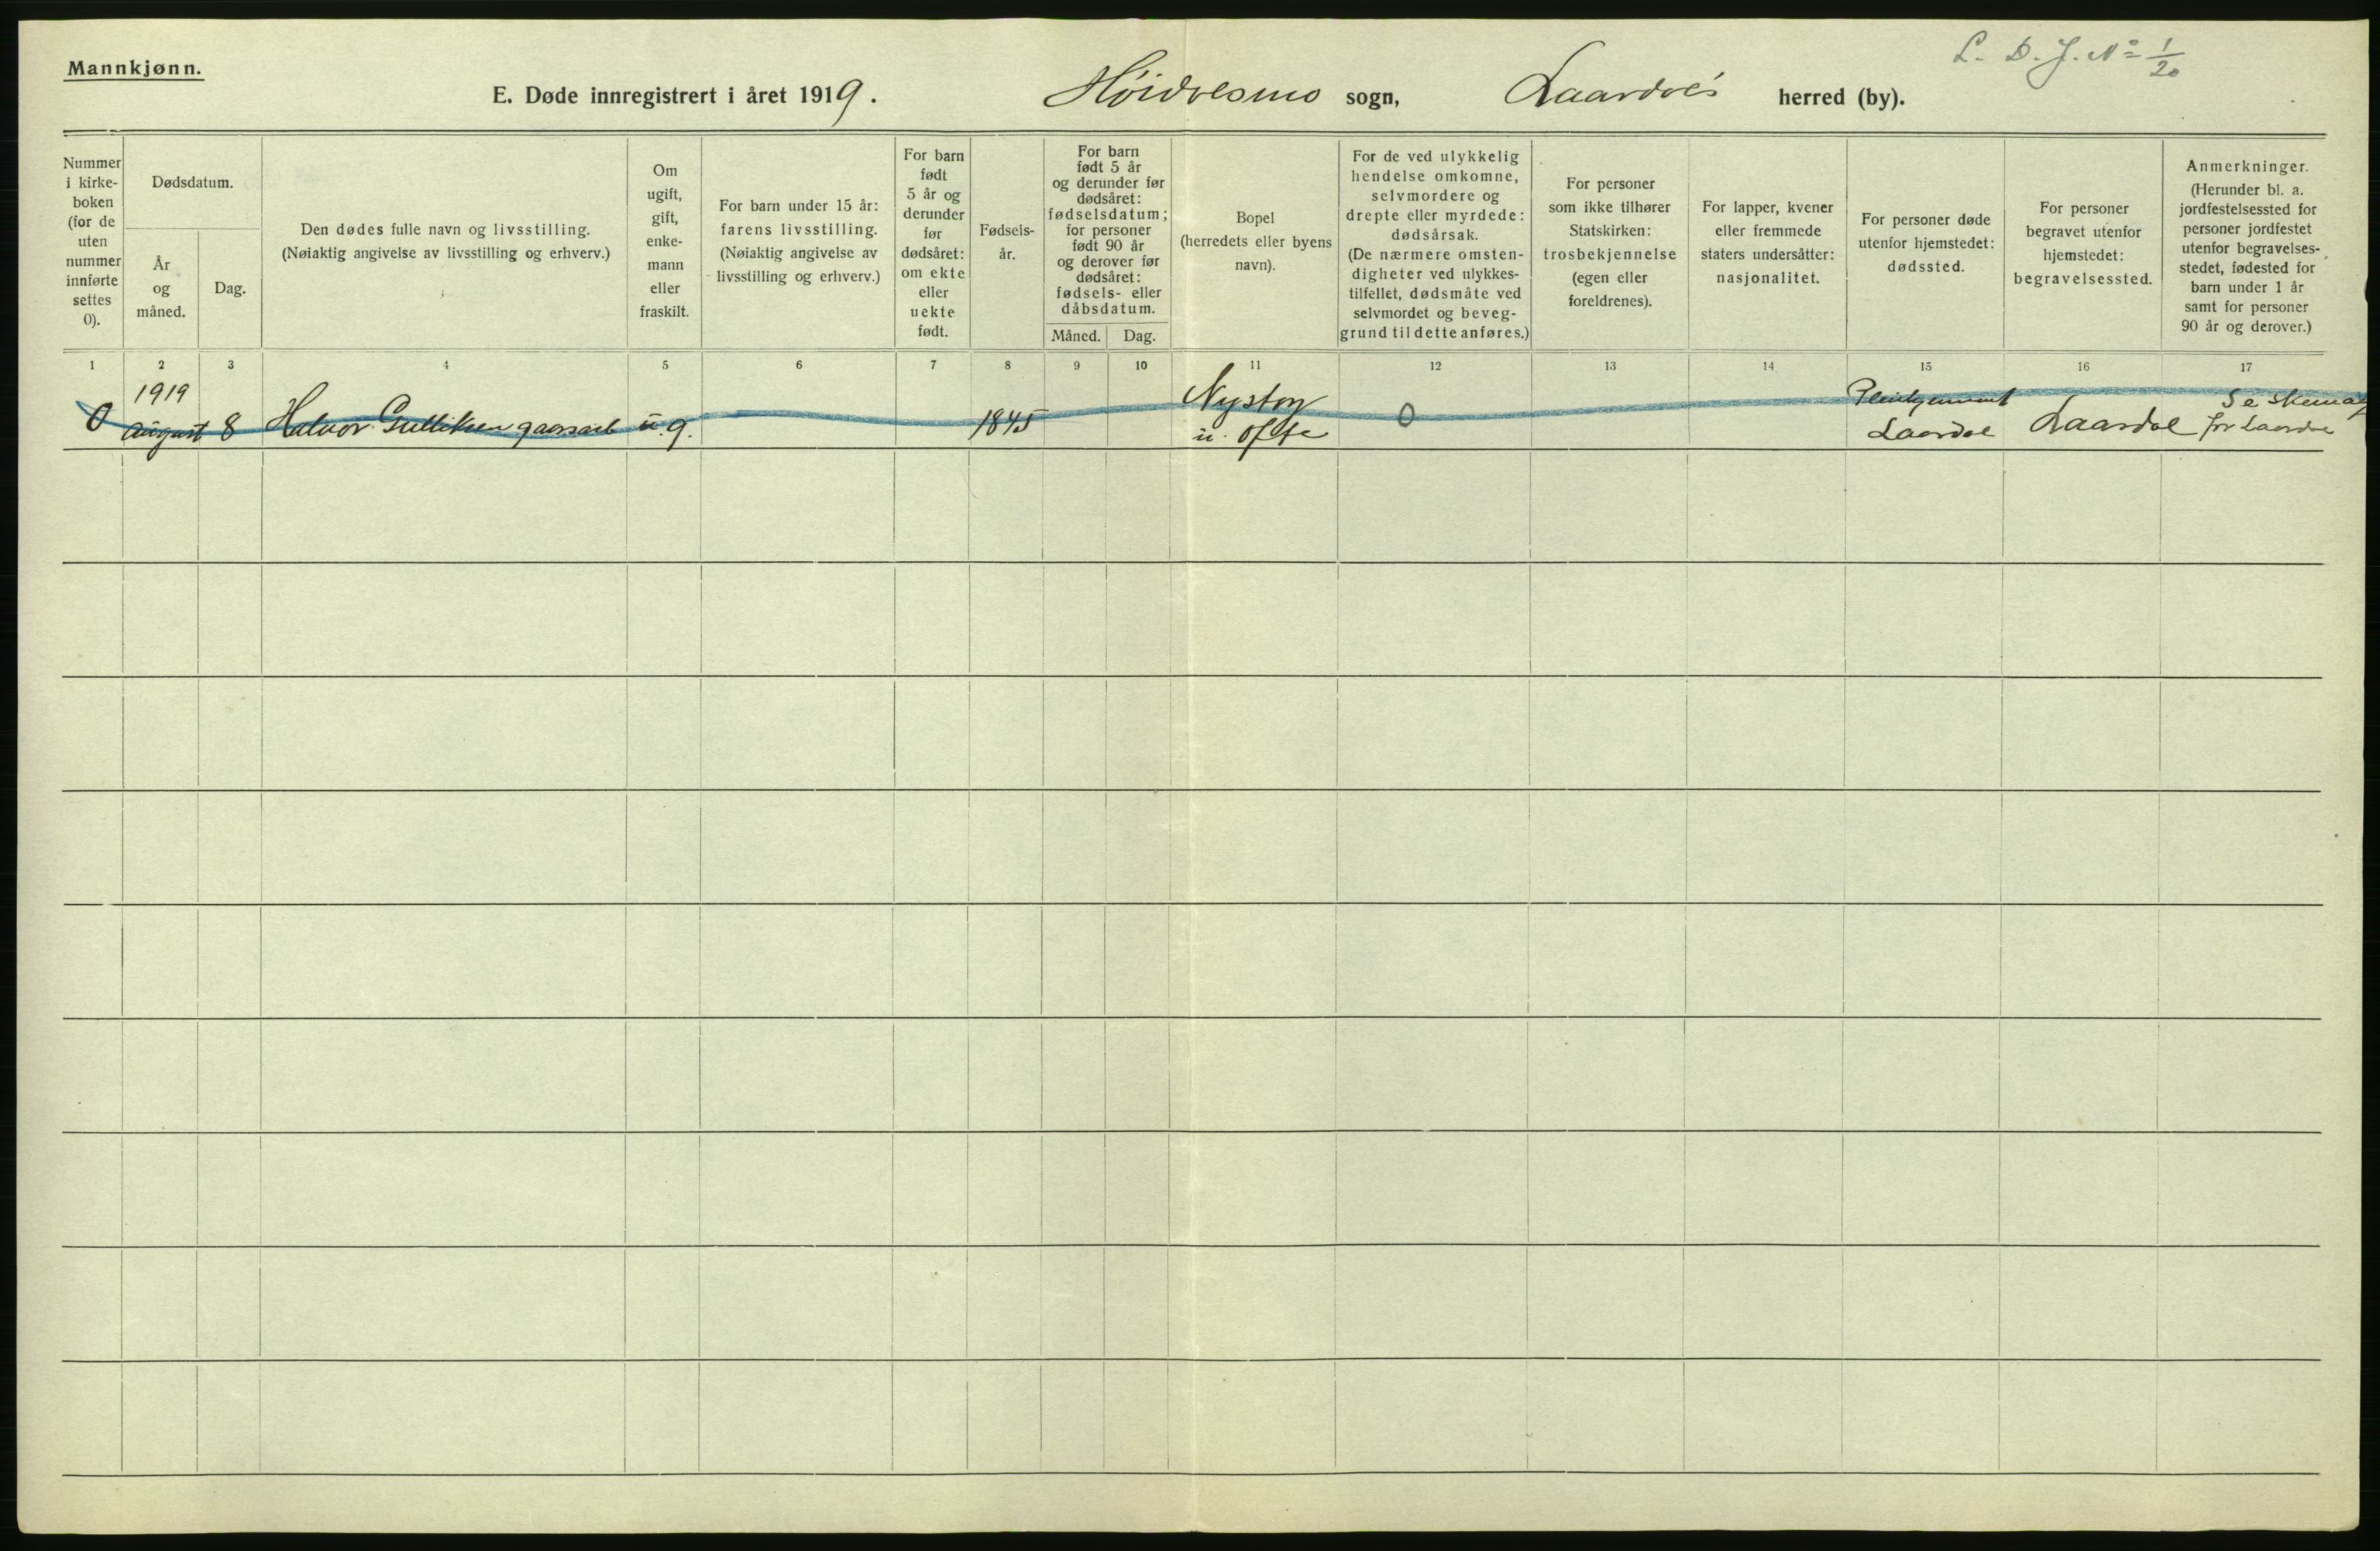 Mannkjønn.
L. D. J. No 1/20
E. Døde innregistrert i året 1919. Høidalsmo sogn, Laardal herred (by).
Nummer
i kirke-
boken
(for de
uten
nummer
innførte
settes
0).
Dødsdatum.
År
og
måned.
Dag.
Den dødes fulle navn og livsstilling.
(Nøiaktig angivelse av livsstilling og erhverv.)
Om
ugift,
gift,
enke-
mann
eller
fraskilt.
For barn under 15 år:
farens livsstilling.
(Nøiaktig angivelse av
livsstilling og erhverv.)
For barn
født
5 år og
derunder
før
dødsåret:
om ekte
eller
uekte
født.
Fødsels-
år.
For barn
født 5 år
og derunder før
dødsåret:
fødselsdatum;
for personer
født 90 år
og derover før
dødsåret:
fødsels- eller
dåbsdatum.
Måned.
Dag.
Bopel
(herredets eller byens
navn).
For de ved ulykkelig
hendelse omkomne,
selvmordere og
drepte eller myrdede:
dødsårsak.
(De nærmere omsten-
digheter ved ulykkes-
tilfellet, dødsmåte ved
selvmordet og beveg-
grund til dette anføres.)
For personer
som ikke tilhører
Statskirken:
trosbekjennelse
(egen eller
foreldrenes).
For lapper, kvener
eller fremmede
staters undersåtter:
nasjonalitet.
For personer døde
utenfor hjemstedet:
dødssted.
For personer
begravet utenfor
hjemstedet:
begravelsessted.
Anmerkninger.
(Herunder bl. a.
jordfestelsessted for
personer jordfestet
utenfor begravelses-
stedet, fødested for
barn under 1 år
samt for personer
90 år og derover.)
1 2 3 4 5 6 7 8 9 10 11 12 13 14 15 16 17
0
1919
august
8
Halvor Gulliksen
u.g.
1845
Nystog
u. Ofte
0
Laardal
Laardal
Se skema
for Laardal